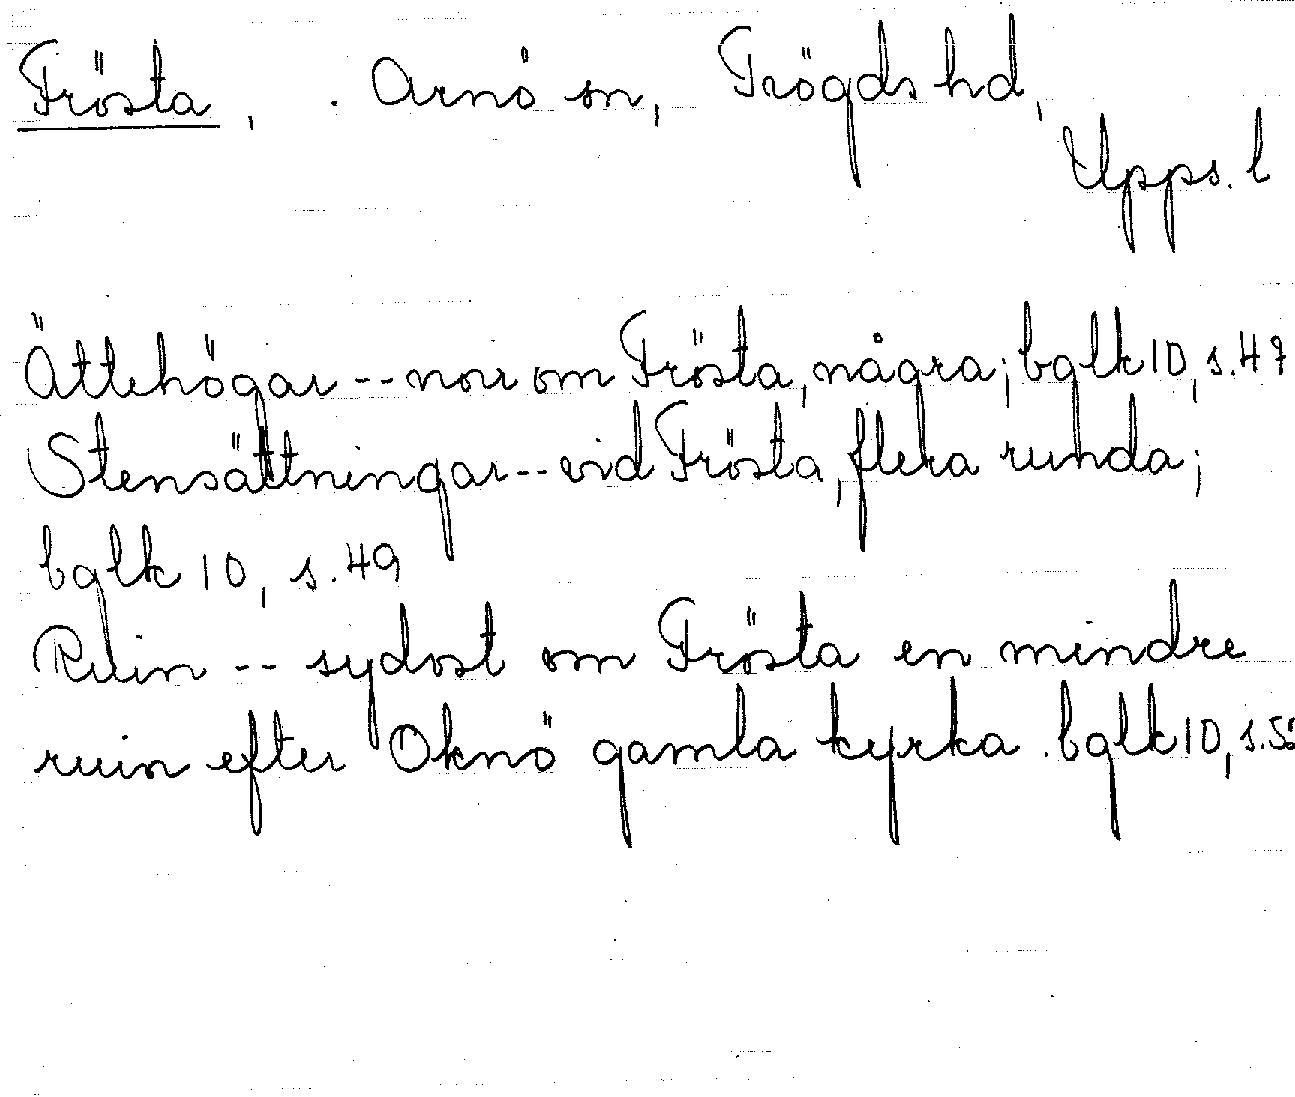 Frösta, . Arnö sn, Trögds hd,
Upps. l
Ättehögar -- norr om Frösta, några; bglk 10, s. 47
Stensättningar -- vid Frösta, flera runda;
bglk 10, s. 49
Ruin -- sydost om Frösta en mindre
ruin efter Oknö gamla kyrka. bglk 10, s.